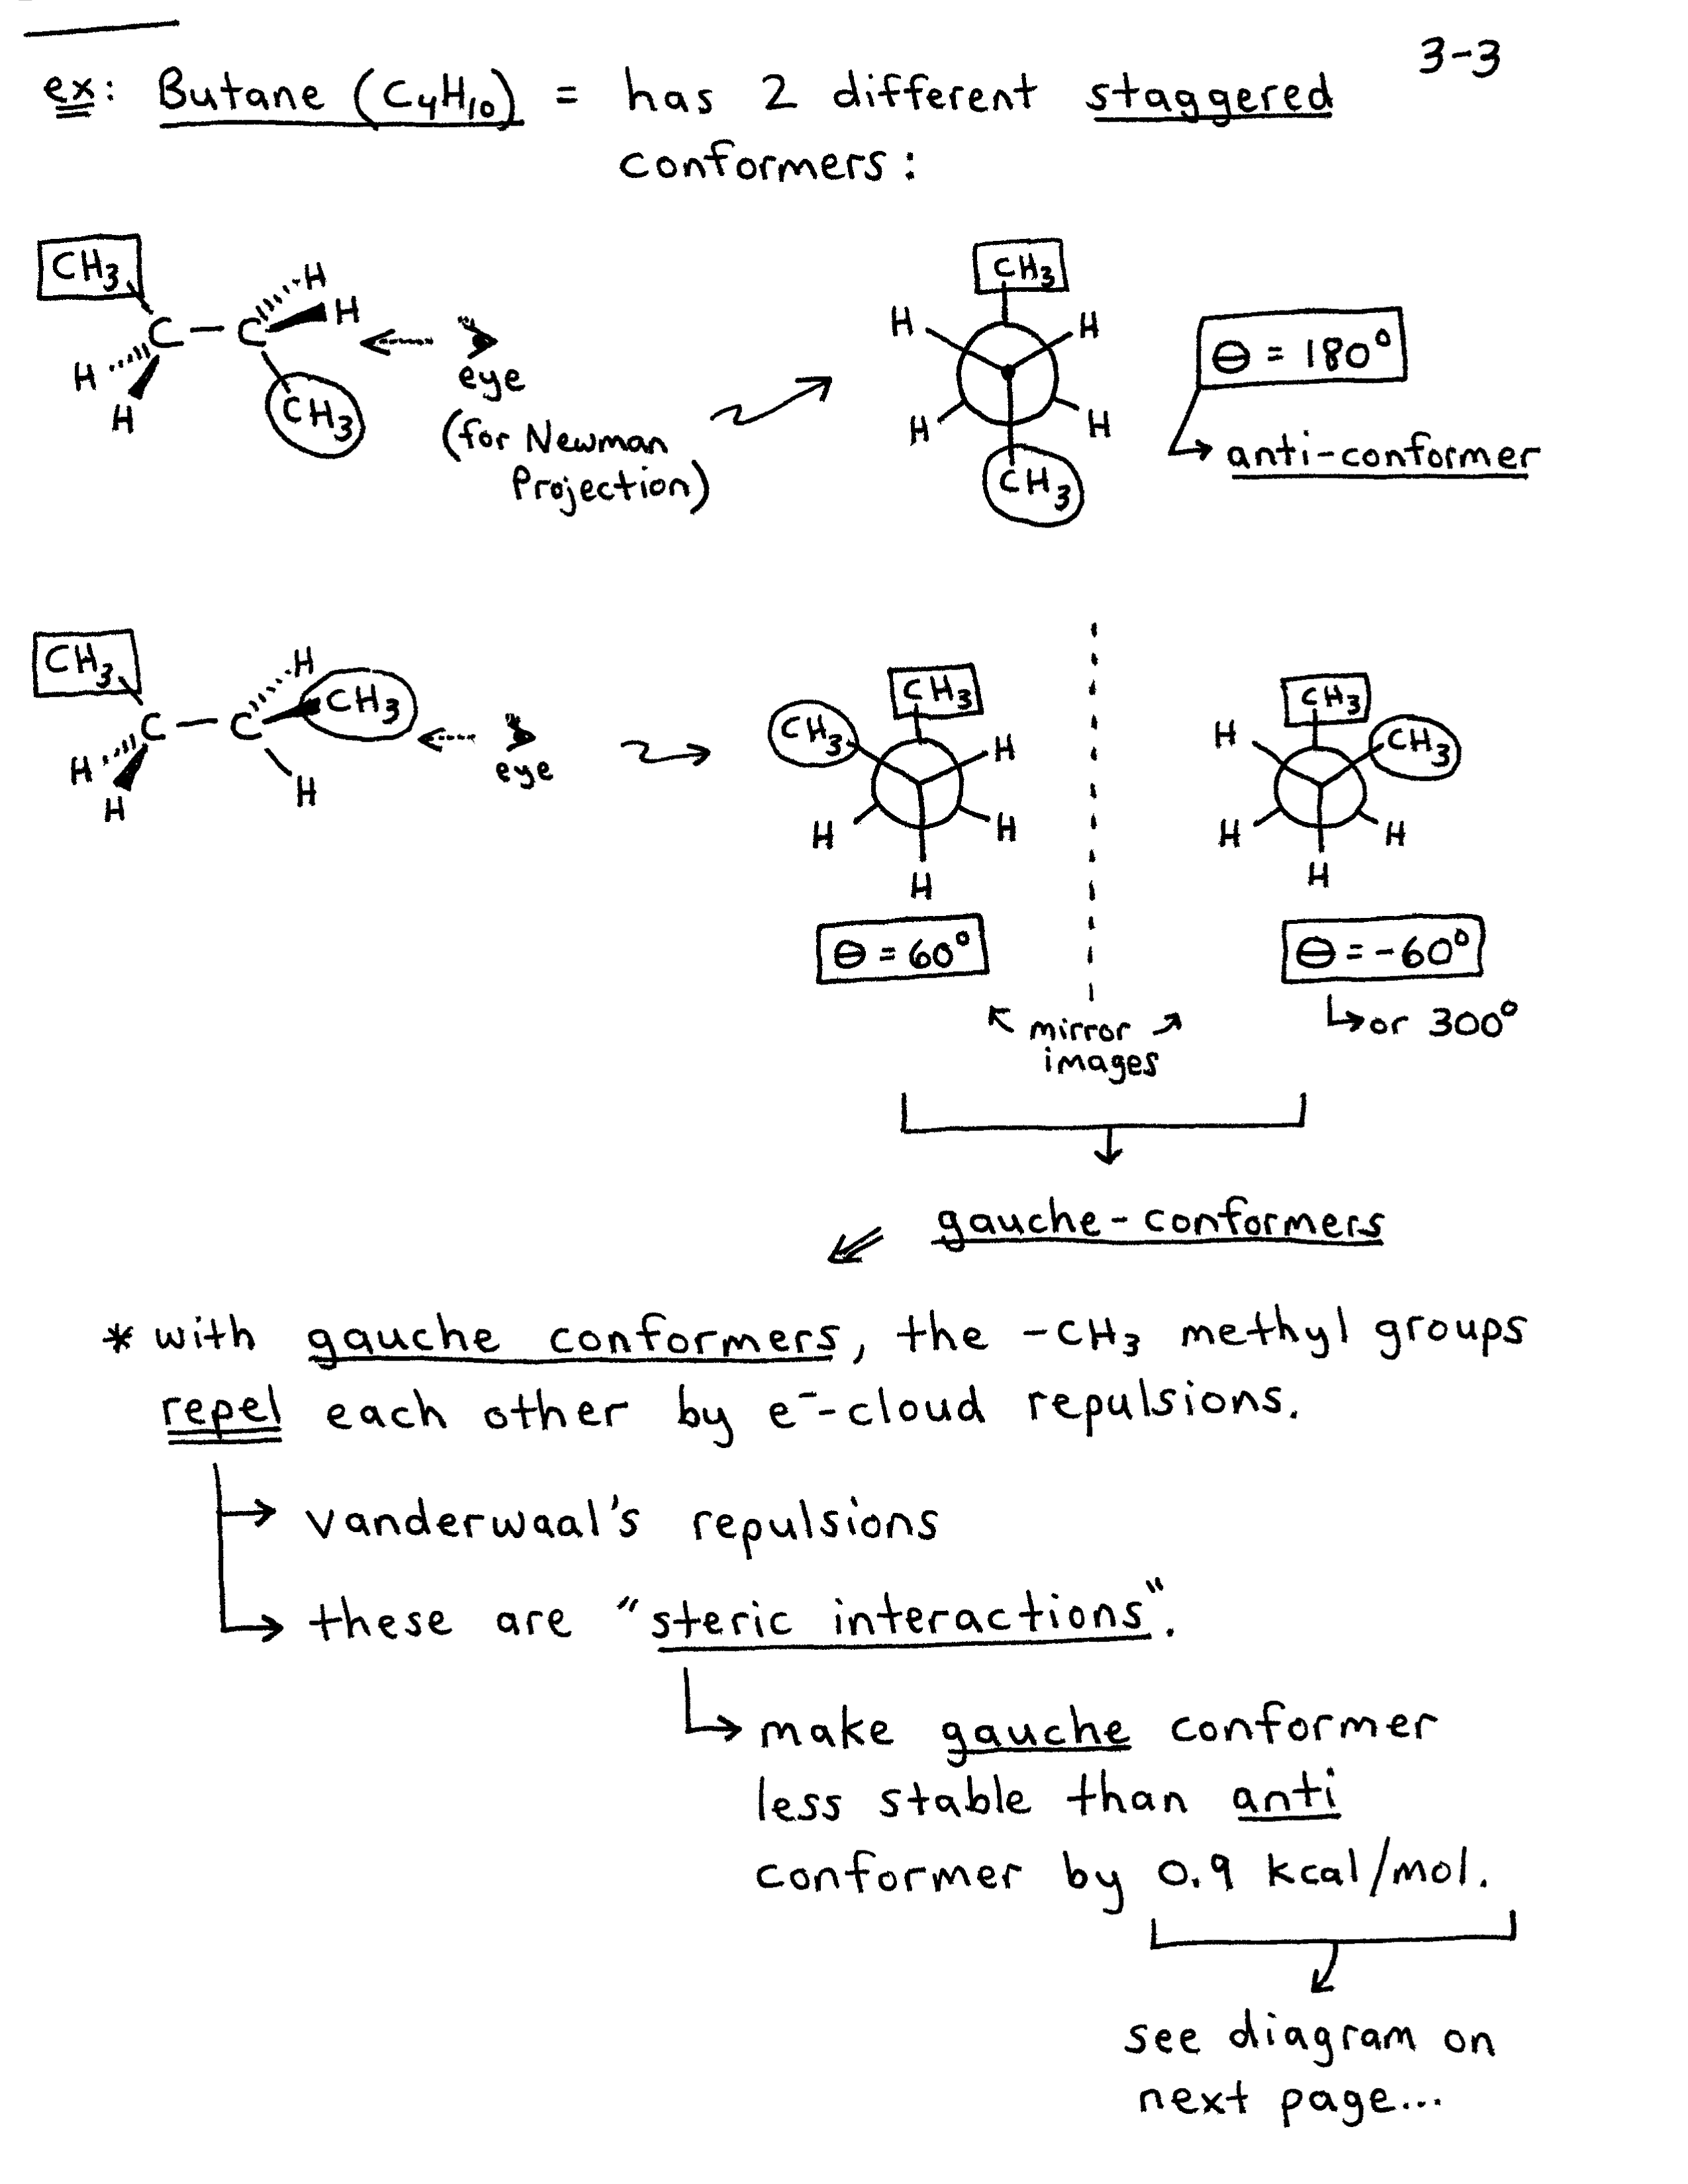 3-3
ex: Butane (C4H10) = has 2 different staggered
conformers:
CH3
H
H
C - C
H
H
CH3
eye
(for Newman
Projection)
CH3
H
H
H
H
CH3
Θ = 180°
anti-conformer
CH3
H
CH3
C - C
H
H
H
eye
CH3
CH3
H
H
H
H
Θ = 60°
CH3
H
CH3
H
H
H
Θ = -60°
or 300°
mirror
images
gauche-conformers
* with gauche conformers, the -CH3 methyl groups
repel each other by e⁻-cloud repulsions.
vanderwaal's repulsions
these are "steric interactions".
make gauche conformer
less stable than anti
conformer by 0.9 kcal/mol.
see diagram on
next page...